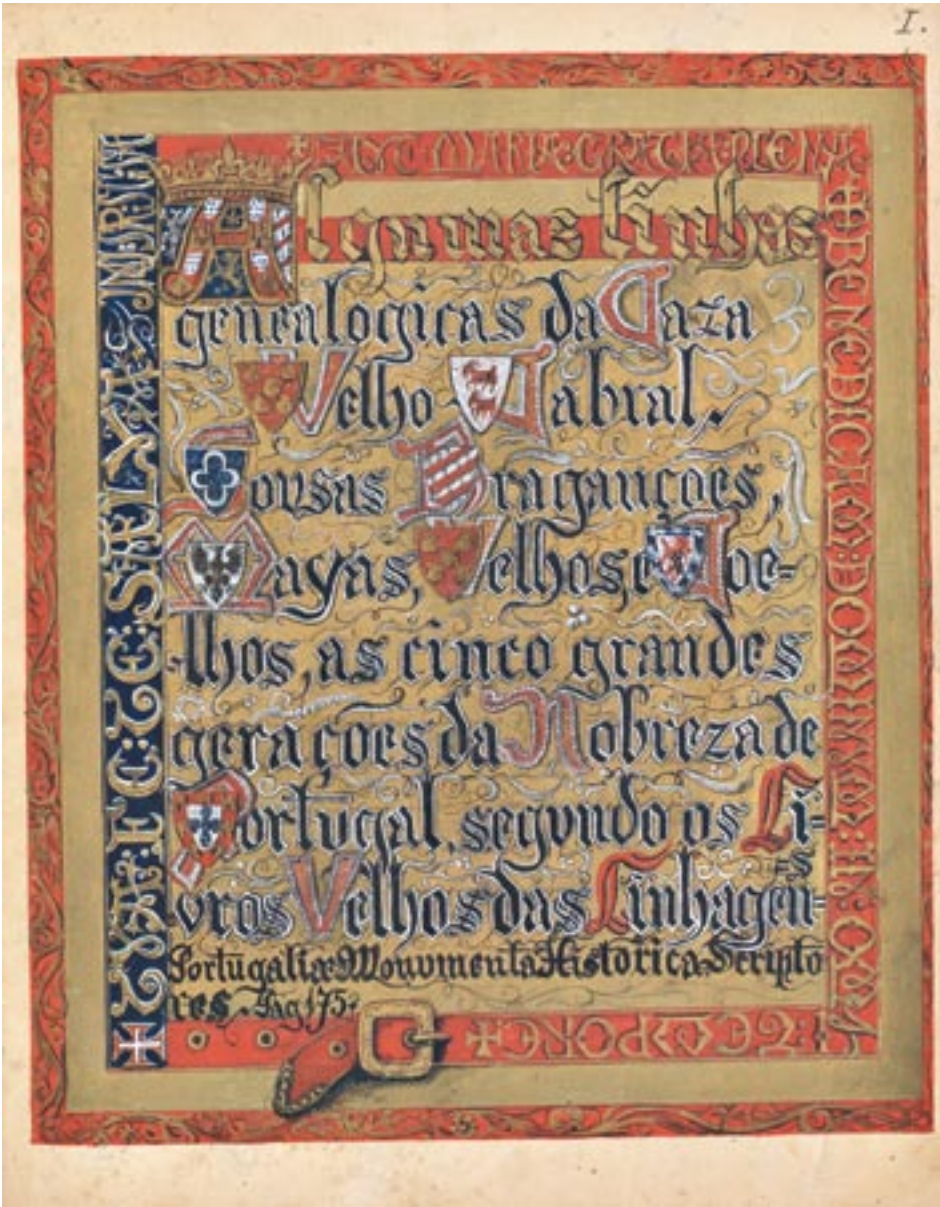 I.
AVE MARIA GRACIA PLENA
Algumas linhas
genealogicas da Caza
Velho Cabral.
Sovsas Bragançoes,
Mayas, Velhos, e Coe-
lhos, as cinco grandes
gerações da Nobreza de
Portugal, segvndo os Li-
vros Velhos das Linhagen-
s
Portugaliæ Monvmenta Historica Scripto
res. Pag 175.